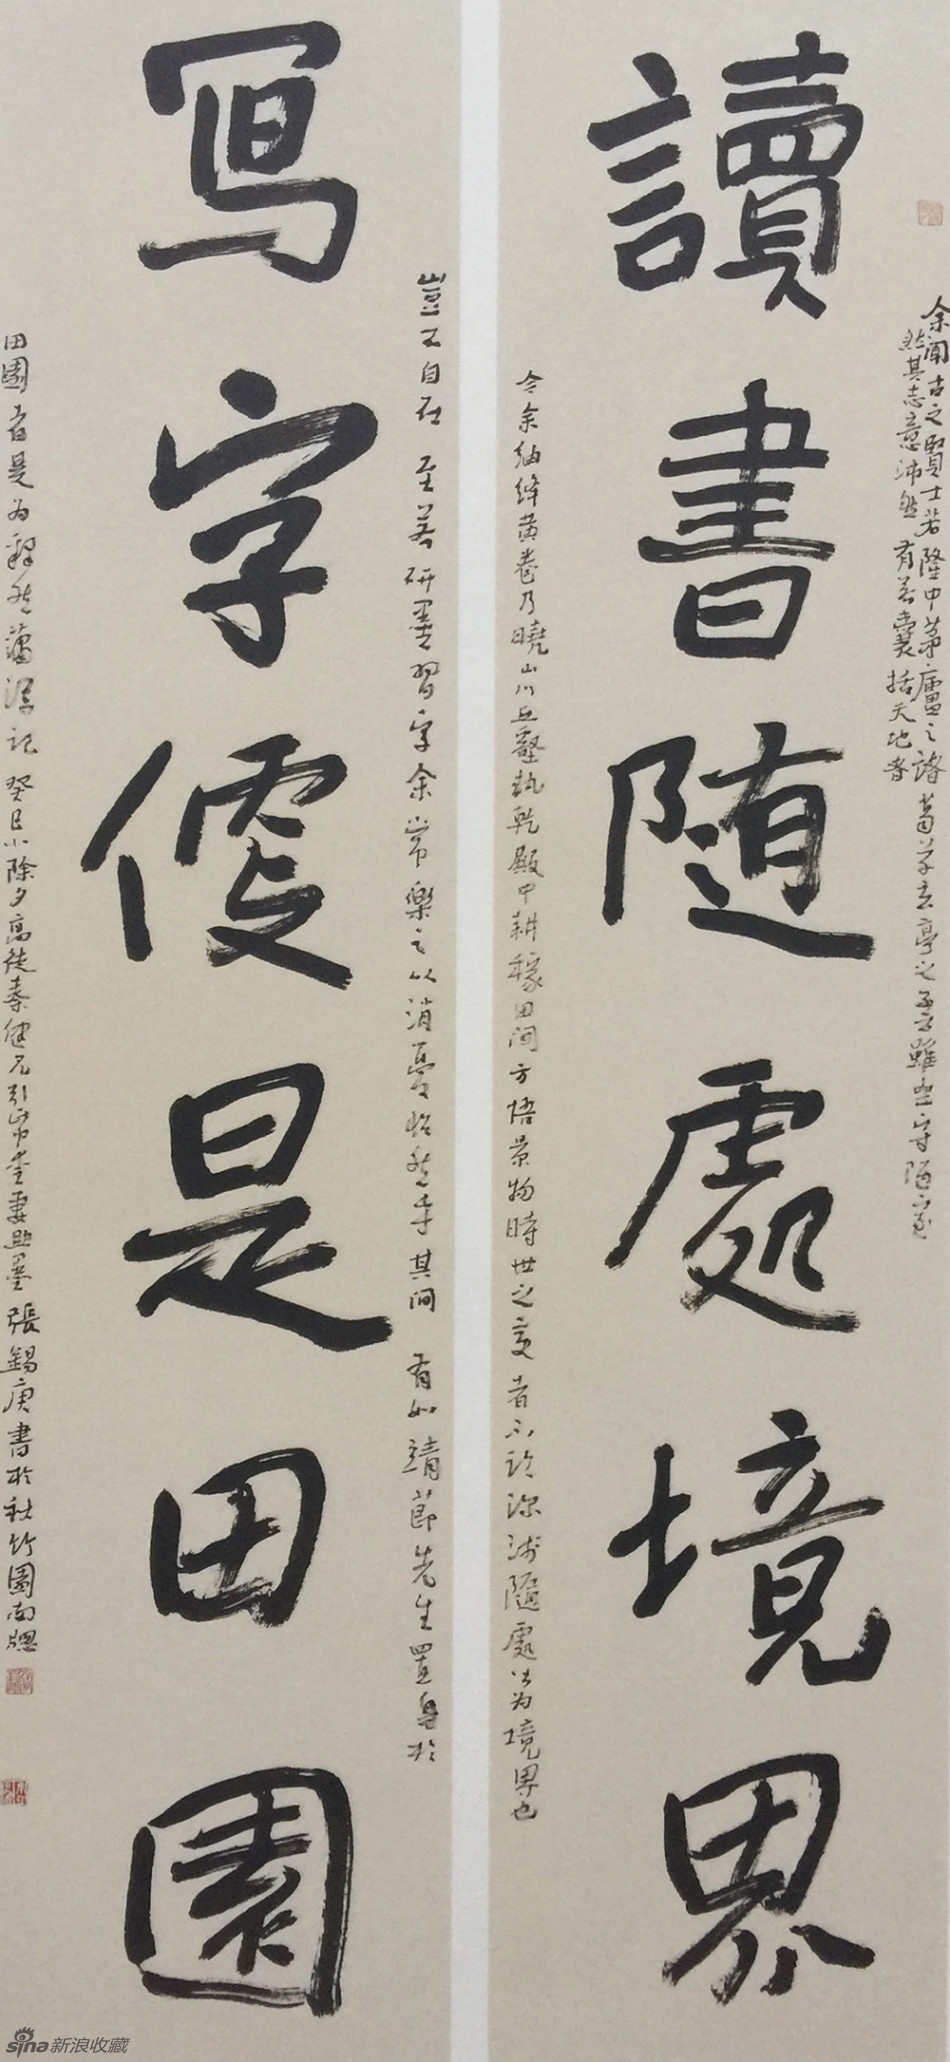 讀書随處境界
余聞古之賢士若隆中茅廬之諸葛草玄亭之
吾雖坐守陋室
然其志意沛然有若囊括天地者
令余紬繹黃卷乃曉山川丘壑執乾殿中耕稼田間方悟景物時世之變者不論深淺隨處皆為境界也
写字便是田園
豈不自在至若研墨習字余常樂之以消憂怡然乎其間有如靖節先生置身於
田園者是為釋然蒲深記癸巳小除夕高徒秦健兄引帋李妻助墨張錫庚書於秋竹園南牕
sina新浪收藏